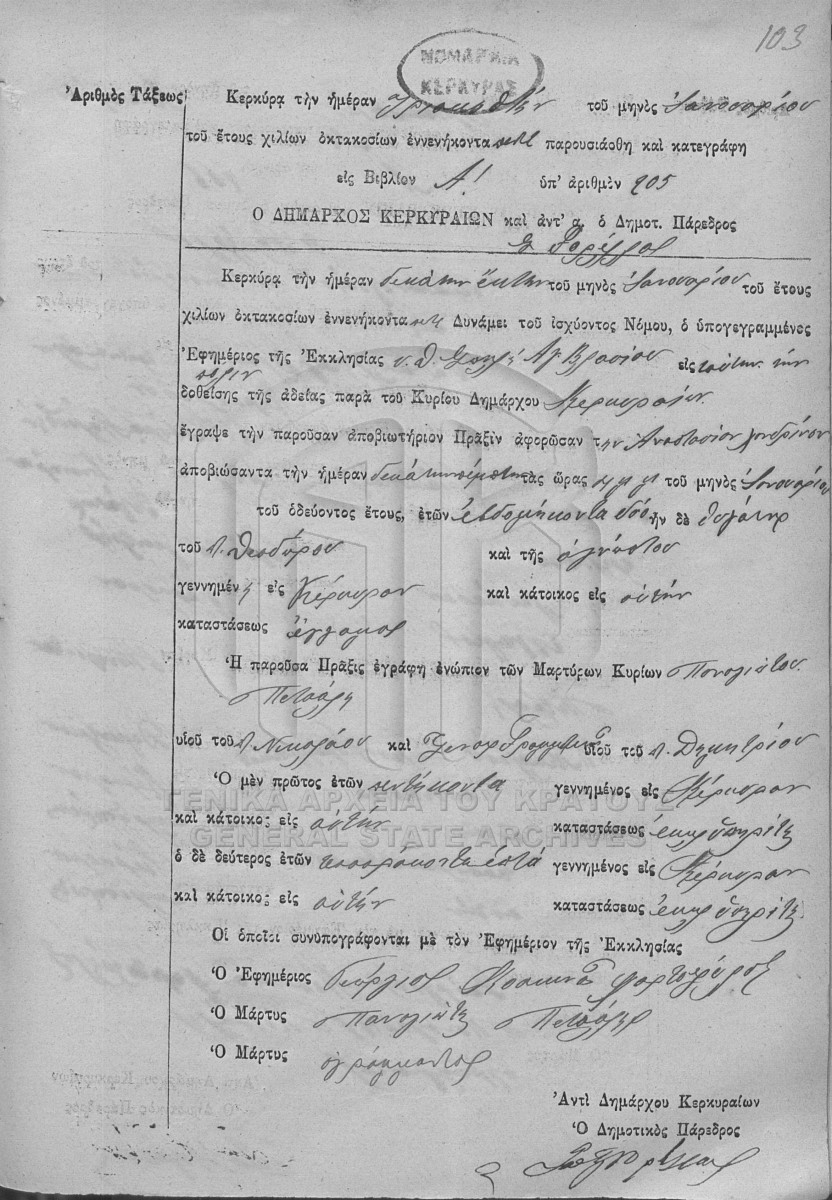 103
ΝΟΜΑΡΧΙΑ
ΚΕΡΚΥΡΑΣ
Ἀριθμὸς Τάξεως
Κερκύρᾳ τὴν ἡμέραν τοῦ μηνὸς Ἰανουαρίου
τοῦ ἔτους χιλίων ὀκτακοσίων ἐννενήκοντα παρουσιάσθη καὶ κατεγράφη
εἰς Βιβλίον Α! ὑπ' ἀριθμὸν 205
Ο ΔΗΜΑΡΧΟΣ ΚΕΡΚΥΡΑΙΩΝ καὶ ἀντ' α. ὁ Δημοτ. Πάρεδρος
Κερκύρᾳ τὴν ἡμέραν δεκάτην ἕκτην τοῦ μηνὸς Ἰανουαρίου τοῦ ἔτους
χιλίων ὀκτακοσίων ἐννενήκοντα Δυνάμει τοῦ ἰσχύοντος Νόμου, ὁ ὑπογεγραμμένος
Ἐφημέριος τῆς Ἐκκλησίας Ἁγ Βλασίου εἰς ταύτην τὴν
πόλιν
δοθείσης τῆς ἀδείας παρὰ τοῦ Κυρίου Δημάρχου Κερκυραίων
ἔγραψε τὴν παροῦσαν ἀποβιωτήριον Πρᾶξιν ἀφορῶσαν τὴν Ἀναστασίαν
ἀποβιώσαντα τὴν ἡμέραν δεκάτην πέμπτην τὰς ὥρας τοῦ μηνὸς Ἰανουαρίου
τοῦ ὁδεύοντος ἔτους, ἐτῶν ἑβδομήκοντα δύο ἦν δὲ θυγάτηρ
τοῦ π. Θεοδώρου καὶ τῆς ἀγνώστου
γεννημένη εἰς Κέρκυραν καὶ κάτοικος εἰς αὐτήν
καταστάσεως ἔγγαμος
Ἡ παροῦσα Πρᾶξις ἐγράφη ἐνώπιον τῶν Μαρτύρων Κυρίων Παναγιώτου
Πετσάλη
υἱοῦ τοῦ π. Νικολάου καὶ υἱοῦ τοῦ π. Δημητρίου
Ὁ μὲν πρῶτος ἐτῶν πεντήκοντα γεννημένος εἰς Κέρκυραν
καὶ κάτοικος εἰς αὐτήν καταστάσεως ἐκκλ ὑπηρέτης
ὁ δὲ δεύτερος ἐτῶν τεσσαράκοντα ἑπτά γεννημένος εἰς Κέρκυραν
καὶ κάτοικος εἰς αὐτήν καταστάσεως ἐκκλ ὑπηρέτης
Οἱ ὁποῖοι συνυπογράφονται μὲ τὸν Ἐφημέριον τῆς Ἐκκλησίας
Ὁ Ἐφημέριος Γεώργιος
Ὁ Μάρτυς Παναγιώτης Πετσάλης
Ὁ Μάρτυς ἀγράμματος
Ἀντὶ Δημάρχου Κερκυραίων
Ὁ Δημοτικὸς Πάρεδρος
ΓΕΝΙΚΑ ΑΡΧΕΙΑ ΤΟΥ ΚΡΑΤΟΥΣ
GENERAL STATE ARCHIVES